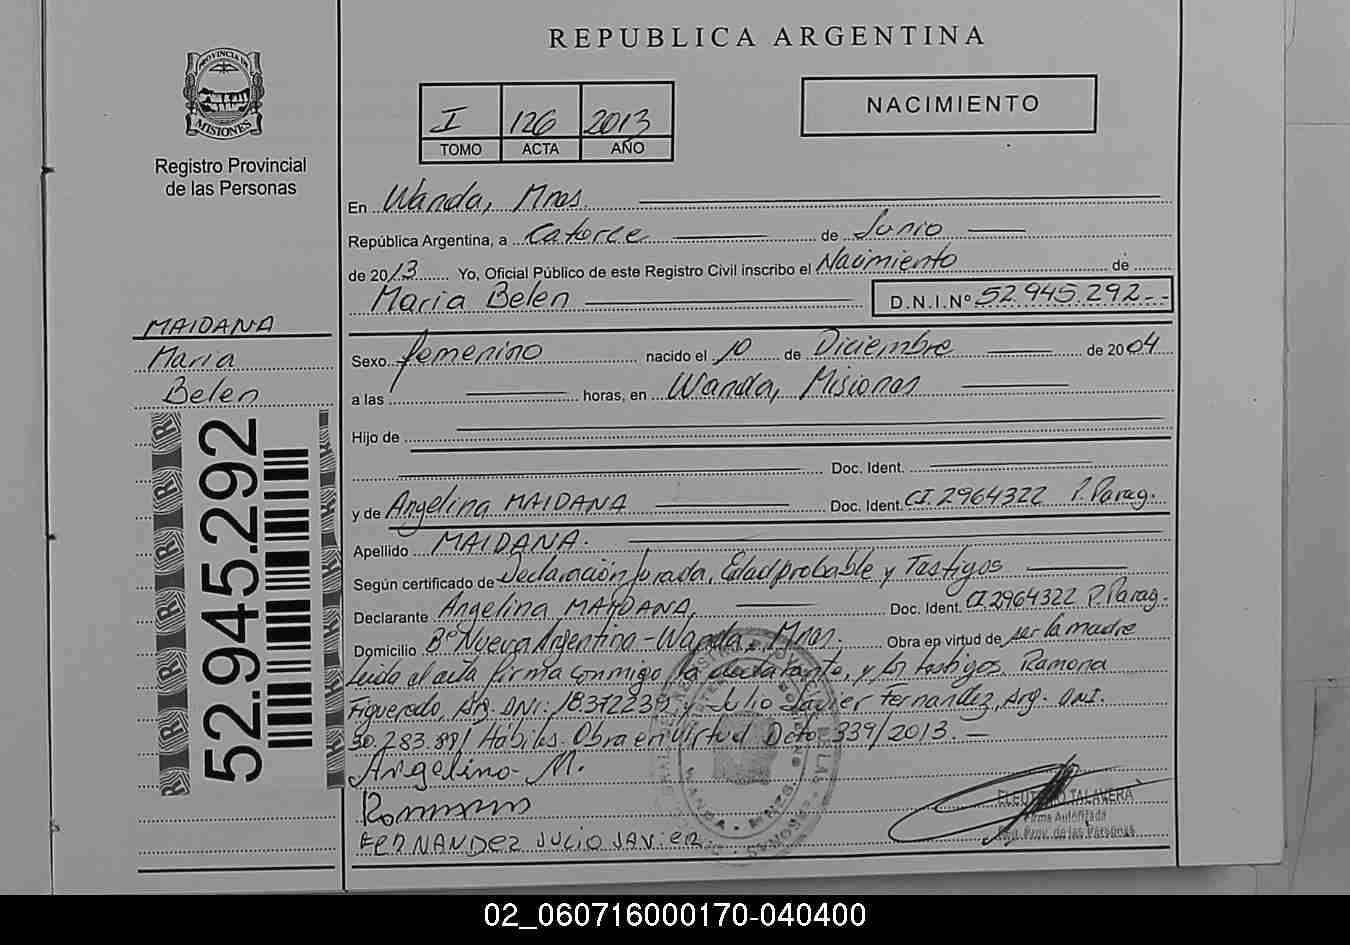 REPUBLICA ARGENTINA
PROVINCIA DE
MISIONES
Registro Provincial
de las Personas
I 126 2013
TOMO ACTA AÑO
NACIMIENTO
En Wanda, Mnes.
República Argentina, a Catorce de Junio
de 2013 Yo, Oficial Público de este Registro Civil inscribo el Nacimiento de
Maria Belen D.N.I.Nº 52.945.292--
MAIDANA
Maria
Belen
52.945.292
Sexo femenino nacido el 10 de Diciembre de 2004
a las horas, en Wanda, Misiones
Hijo de
Doc. Ident.
y de Angelina MAIDANA Doc. Ident. CI 2964322 P. Parag.
Apellido MAIDANA.
Según certificado de Declaración Jurada, Edad probable y Testigos
Declarante Angelina MAIDANA, Doc. Ident. CI 2964322 P. Parag.
Domicilio Bº Nueva Argentina - Wanda, Mnes. Obra en virtud de ser la madre
Leida el acta firma conmigo la declarante, y los testigos, Ramona
Figueredo, Arg. DNI: 18372239 y Julio Javier Fernandez, Arg. DNI.
30.283.891 Habiles. Obra en virtud Dcto 339/2013. —
Angelina M.
Ramona
FERNANDEZ JULIO JAVIER
WANDA - MNES.
ELEUTERIO TALAVERA
Firma Autorizada
Reg. Prov. de las Personas
02_060716000170-040400